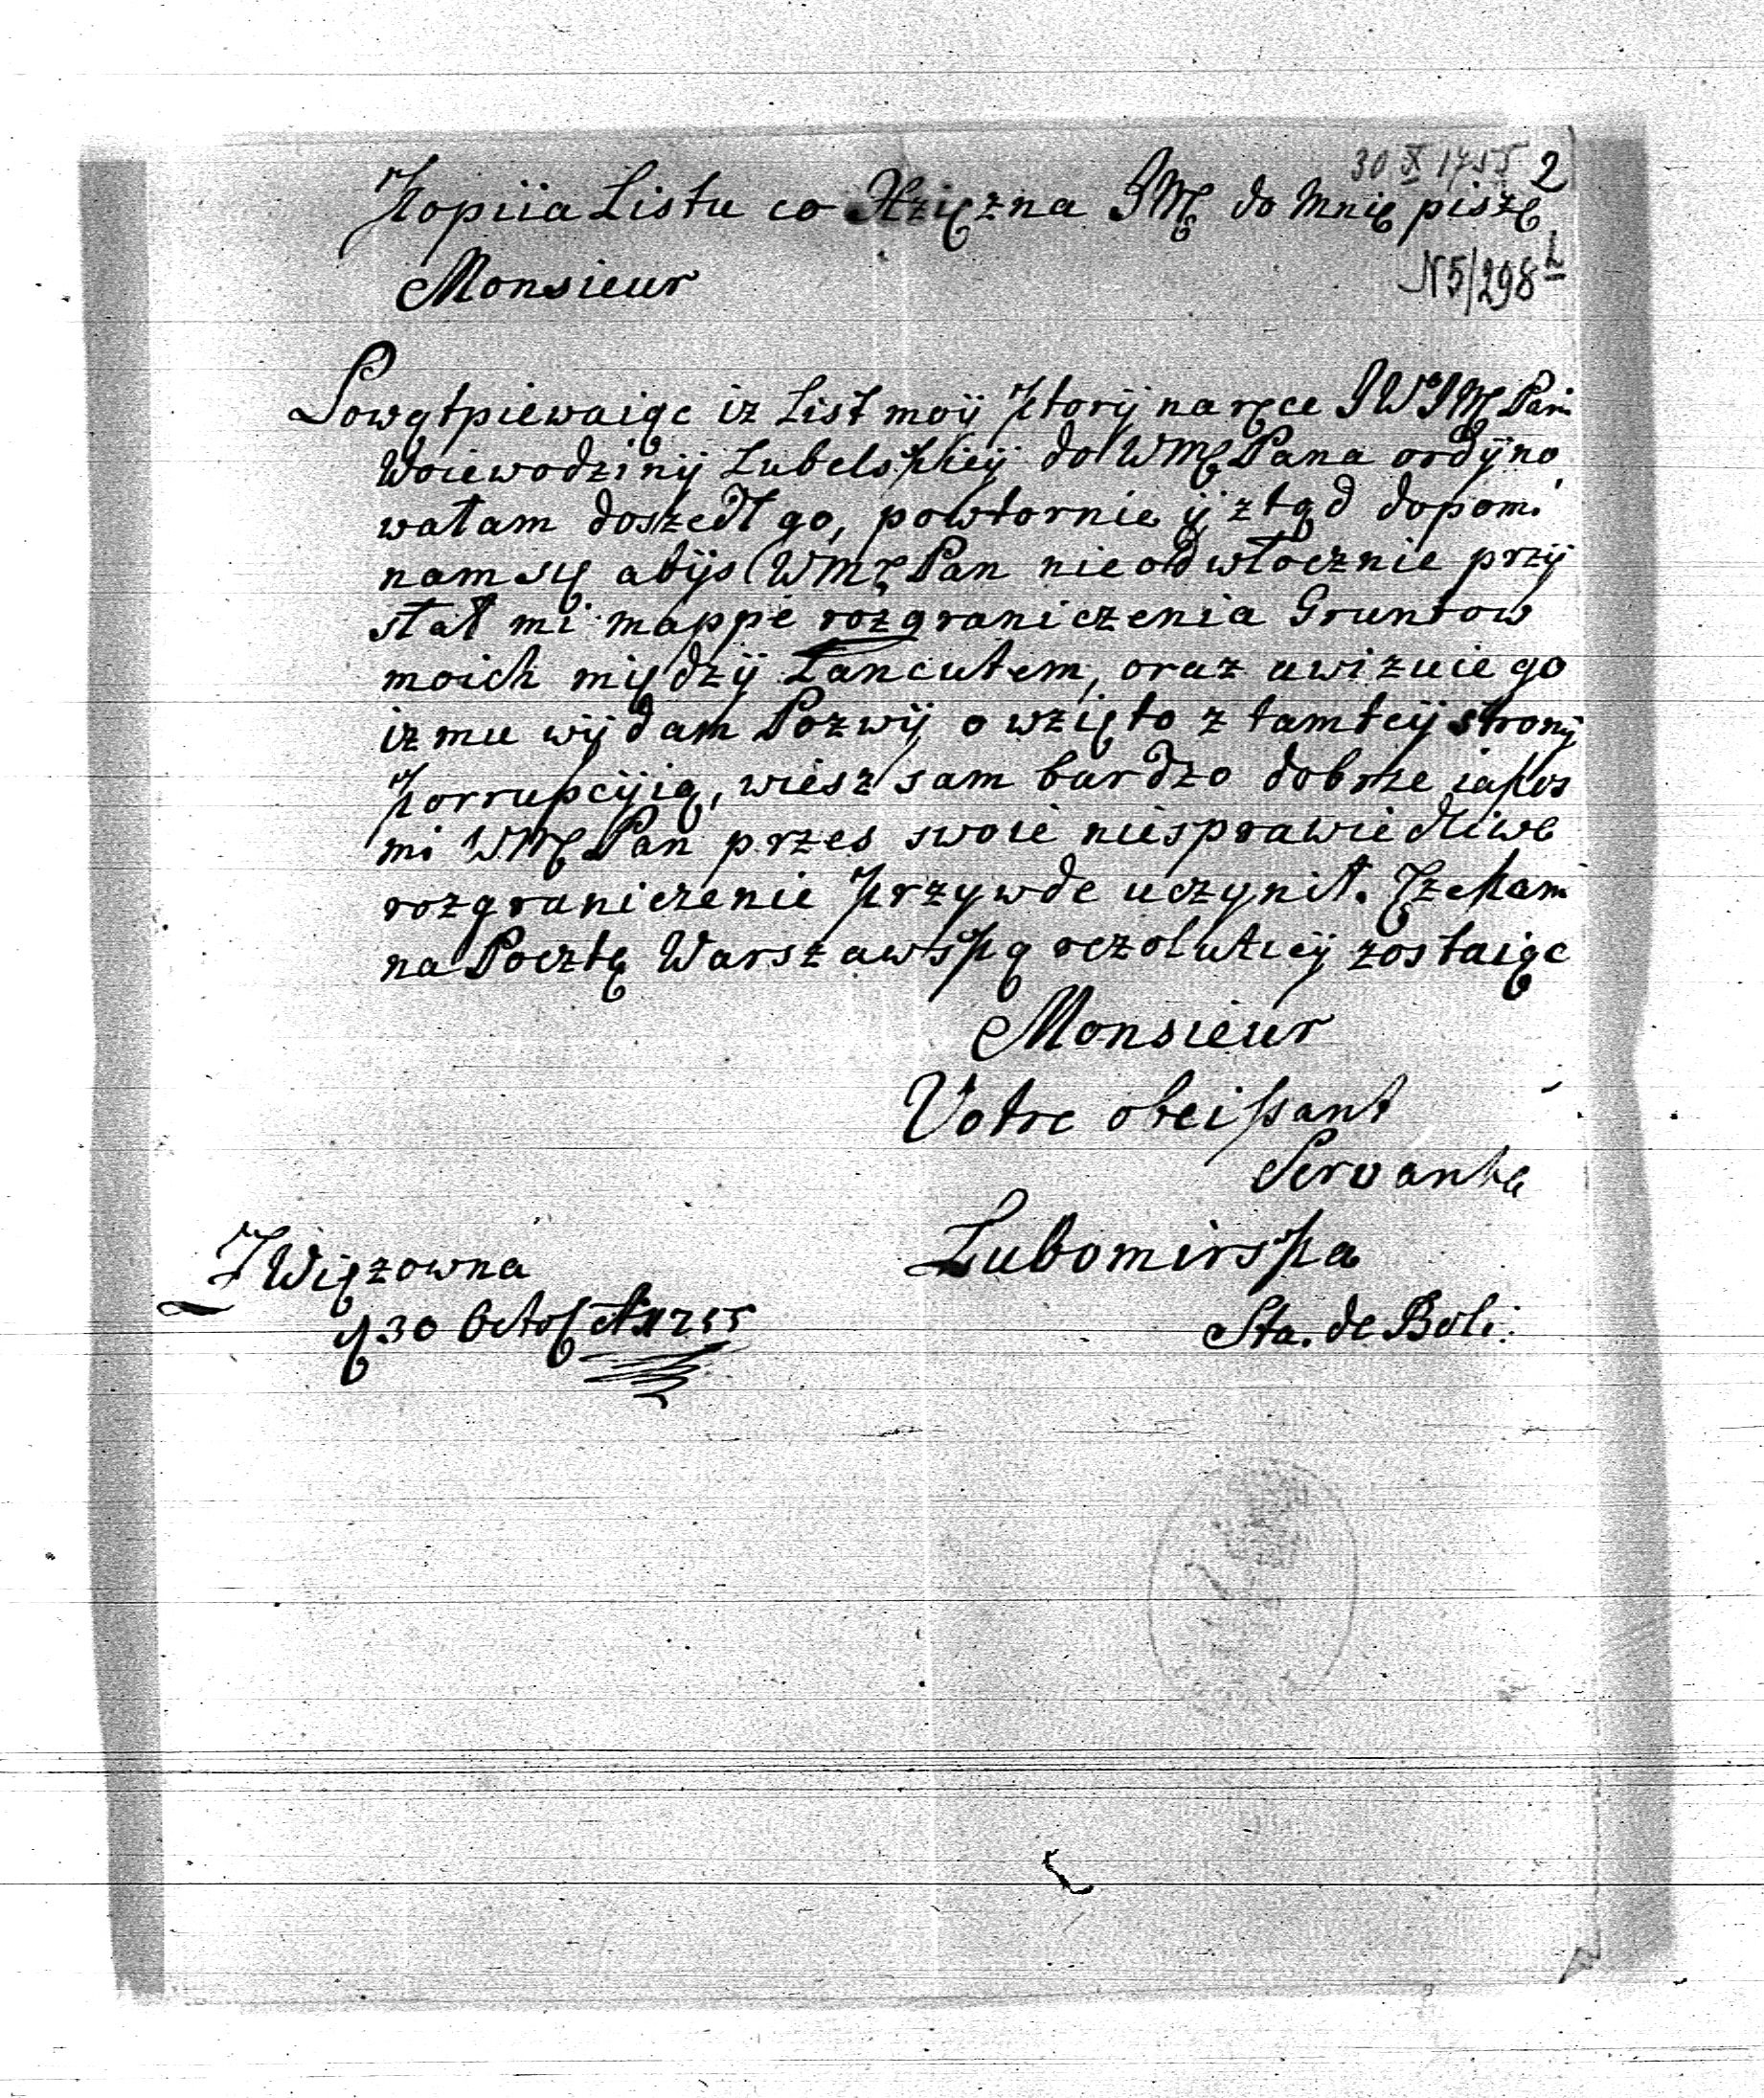 30 X 1755 2
Kopiia Listu co Xzięzna JMę do mnie pisze
N5/298 L
Monsieur
Powątpiewaiąc iz List moÿ ktorÿ na ręce JWJMę Pani
Woiewodzinÿ Lubelskieÿ do WMę Pana ordÿno
wałam doszedł go, powtornie ÿ ztąd dopomi
nam się abÿs WMę Pan nieodwłocznie przÿ
słał mi mappe rozgraniczenia Gruntow
moich międzÿ Łancutem, oraz awizuie go
iz mu wÿdam Pozwÿ o wzięto z tamteÿ stronÿ
korrupcÿią, wiesz sam bardzo dobrze iakos
mi WMę Pan przes swoie niesprawiedliwe
rozgraniczenie krzywde uczynił. Czekam
na Pocztę Warszawską rezolutieÿ zostaiąc
Monsieur
Votre obeissant
Servante
Lubomirska
Sta. de Boli:
Z Wiązowna
d 30 Octob A 1755